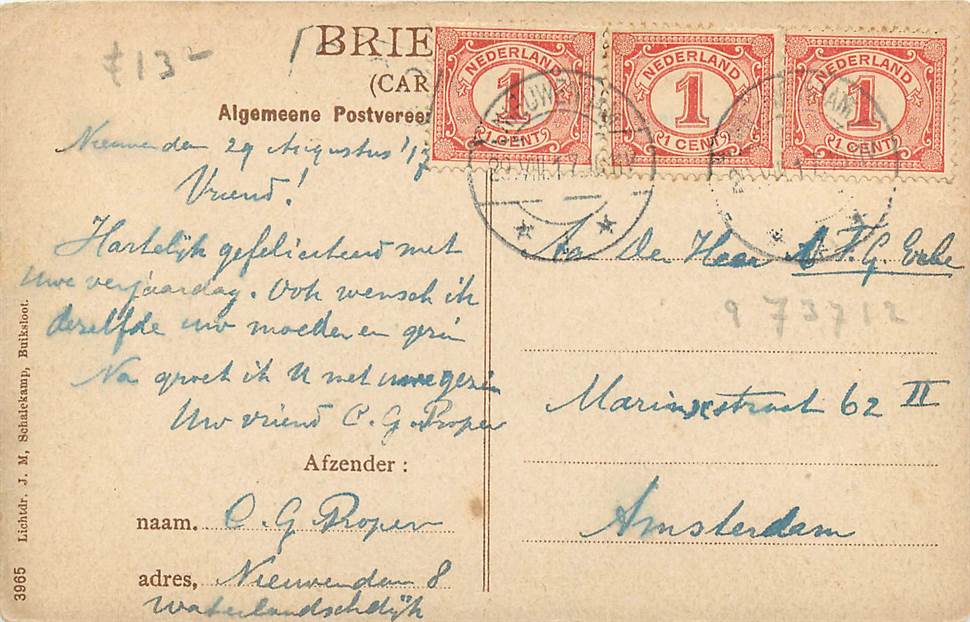 £ 13-
BRIE
(CAR
Algemeene Postveree
NEDERLAND
1
1 CENT
NEDERLAND
1
1 CENT
NEDERLAND
1
1 CENT
Nieuwendam 29 Augustus '17
Vriend!
Hartelijk gefeliciteerd met
uwe verjaardag. Ook wensch ik
dezelfde uw moeder en gezin
Na groet ik U met uwe gezin
Uw vriend C. G. Proper
Afzender:
naam. C. G Proper
adres, Nieuwendam 8
Waterlandschdijk
Aan Den Heer F. G.
9 73712
Marnixstraat 62 II
Amsterdam
3965 Lichtdr. J. M, Schalekamp, Buiksloot.